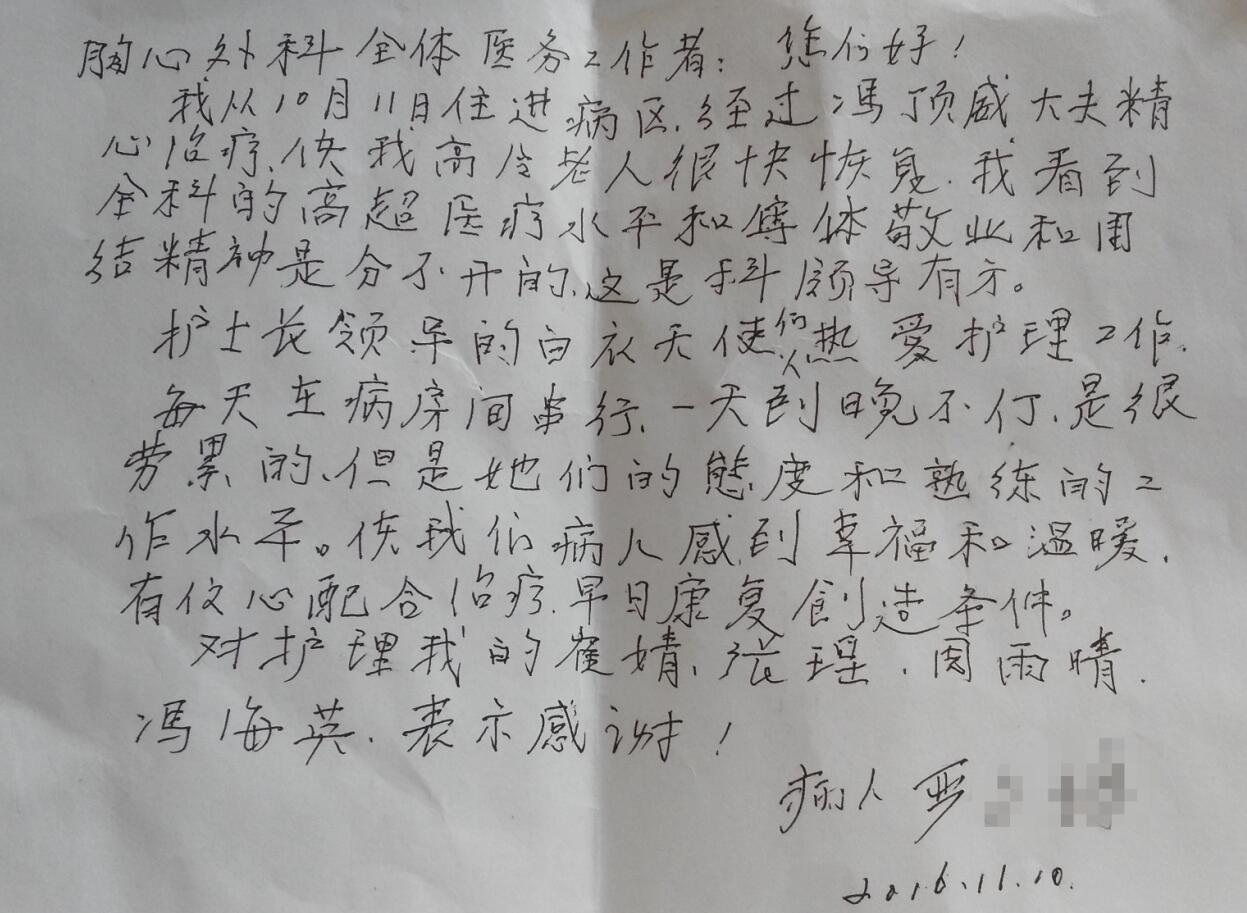 胸心外科全体医务工作者: 您们好!
我从10月11日住进病区.经过冯顶威大夫精
心治疗.使我高令老人很快恢复.我看到
全科的高超医疗水平和体敬业和团
结精神是分不开的.这是科领导有方。
护士长领导的白衣天使们人热爱护理工作.
每天在病房间串行.一天到晚不停.是很
劳累的.但是她们的態度和熟练的工
作水平。使我们病人感到幸福和温暖.
有信心配合治疗.早日康复創造条件。
对护理我的崔婧.张瑶.周雨晴.
冯海英.表示感谢!
病人 严
2016.11.10.